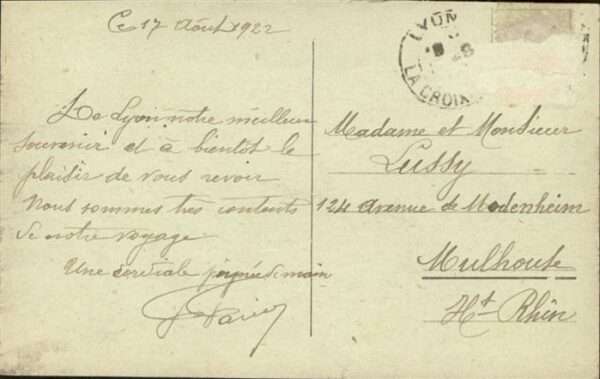 Ce 17 Août 1922
De Lyon notre meilleur
souvenir et à bientôt le
plaisir de vous revoir
Nous sommes très contents
de notre voyage
Une cordiale poignée de main
LYON
LA CROIX
Madame et Monsieur
Lussy
124 Avenue de Modenheim
Mulhouse
Ht Rhin